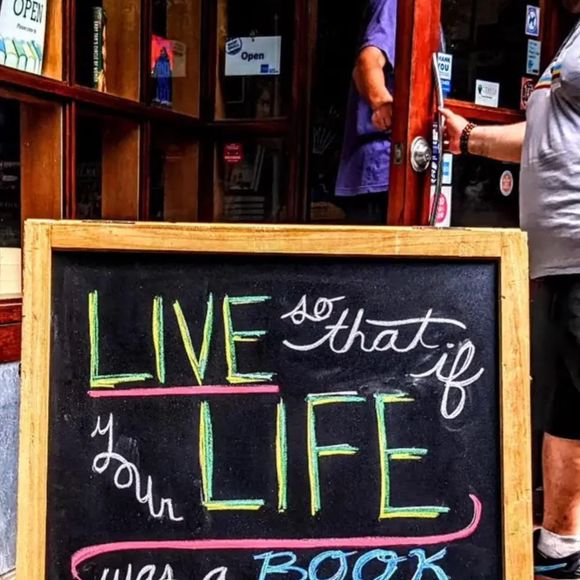 OPEN
Open
THANK YOU
LIVE so that if
your LIFE
was a BOOK